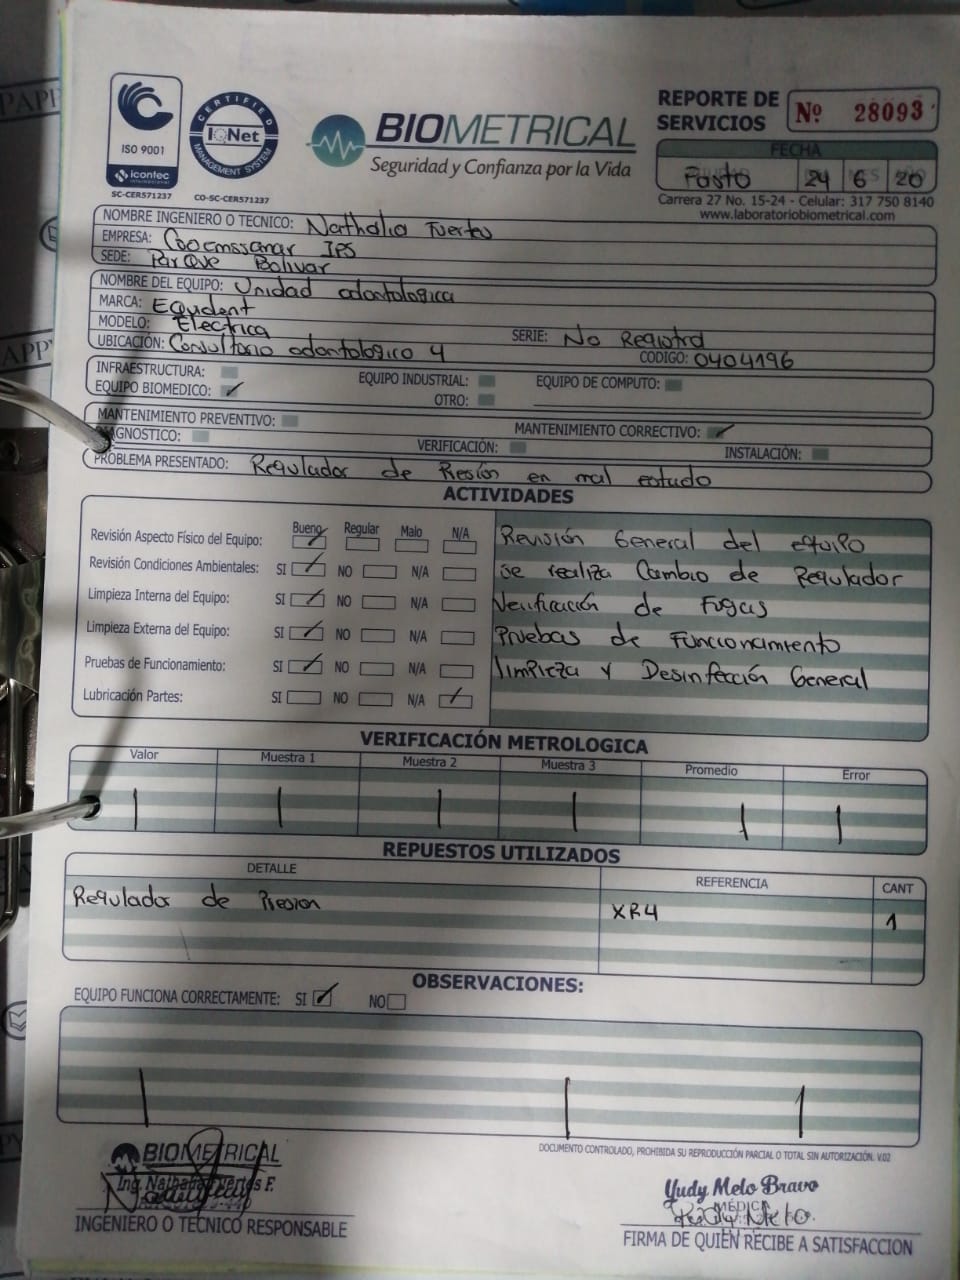 ISO 9001
icontec
internacional
SC-CER571237
CERTIFIED
IQNet
MANAGEMENT SYSTEM
CO-SC-CER571237
BIOMETRICAL
Seguridad y Confianza por la Vida
REPORTE DE SERVICIOS
Nº 28093
FECHA
Pasto 24 6 20
Carrera 27 No. 15-24 - Celular: 317 750 8140
www.laboratoriobiometrical.com
NOMBRE INGENIERO O TECNICO: Nathalia Fuertes
EMPRESA: Coocmssanar IPS
SEDE: Parque Bolivar
NOMBRE DEL EQUIPO: Unidad odontologica
MARCA: Equdent
MODELO: Electrica SERIE: No Registra
UBICACIÓN: Consultorio odontologico 4 CODIGO: 0404196
INFRAESTRUCTURA: EQUIPO INDUSTRIAL: EQUIPO DE COMPUTO:
EQUIPO BIOMEDICO: ✓ OTRO:
MANTENIMIENTO PREVENTIVO: MANTENIMIENTO CORRECTIVO: ✓
DIAGNOSTICO: VERIFICACIÓN: INSTALACIÓN:
PROBLEMA PRESENTADO: Regulador de Presión en mal estado
ACTIVIDADES
Bueno Regular Malo N/A
Revisión Aspecto Físico del Equipo: ✓
Revisión Condiciones Ambientales: SI ✓ NO N/A
Limpieza Interna del Equipo: SI ✓ NO N/A
Limpieza Externa del Equipo: SI ✓ NO N/A
Pruebas de Funcionamiento: SI ✓ NO N/A
Lubricación Partes: SI NO N/A ✓
Revisión General del equipo
se realiza Cambio de Regulador
Verificación de Fugas
Pruebas de Funcionamiento
limpieza y Desinfección General
VERIFICACIÓN METROLOGICA
Valor Muestra 1 Muestra 2 Muestra 3 Promedio Error
REPUESTOS UTILIZADOS
DETALLE REFERENCIA CANT
Regulador de Presion XR4 1
OBSERVACIONES:
EQUIPO FUNCIONA CORRECTAMENTE: SI ✓ NO
DOCUMENTO CONTROLADO, PROHIBIDA SU REPRODUCCIÓN PARCIAL O TOTAL SIN AUTORIZACIÓN. V.02
BIOMETRICAL
Ing. Nathalia Fuertes F.
INGENIERO O TECNICO RESPONSABLE
Yudy Melo Bravo
MÉDICA
FIRMA DE QUIEN RECIBE A SATISFACCION